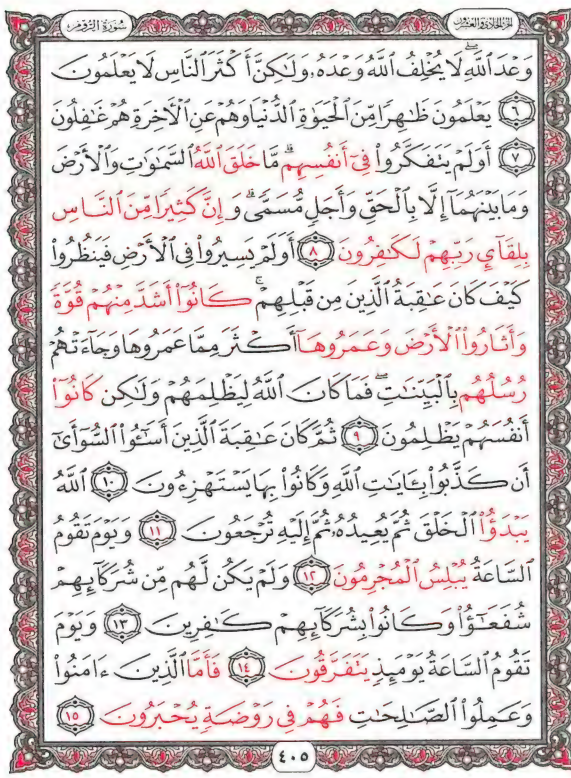 الجزء الحادي والعشرون سُورَةُ الرُّومِ
وَعْدَ ٱللَّهِۖ لَا يُخْلِفُ ٱللَّهُ وَعْدَهُۥ وَلَٰكِنَّ أَكْثَرَ ٱلنَّاسِ لَا يَعْلَمُونَ
٦ يَعْلَمُونَ ظَٰهِرًا مِّنَ ٱلْحَيَوٰةِ ٱلدُّنْيَا وَهُمْ عَنِ ٱلْءَاخِرَةِ هُمْ غَٰفِلُونَ
٧ أَوَلَمْ يَتَفَكَّرُوا۟ فِىٓ أَنفُسِهِمۗ مَّا خَلَقَ ٱللَّهُ ٱلسَّمَٰوَٰتِ وَٱلْأَرْضَ
وَمَا بَيْنَهُمَآ إِلَّا بِٱلْحَقِّ وَأَجَلٍ مُّسَمًّىۗ وَإِنَّ كَثِيرًا مِّنَ ٱلنَّاسِ
بِلِقَآئِ رَبِّهِمْ لَكَٰفِرُونَ ٨ أَوَلَمْ يَسِيرُوا۟ فِى ٱلْأَرْضِ فَيَنظُرُوا۟
كَيْفَ كَانَ عَٰقِبَةُ ٱلَّذِينَ مِن قَبْلِهِمْۚ كَانُوٓا۟ أَشَدَّ مِنْهُمْ قُوَّةً
وَأَثَارُوا۟ ٱلْأَرْضَ وَعَمَرُوهَآ أَكْثَرَ مِمَّا عَمَرُوهَا وَجَآءَتْهُمْ
رُسُلُهُم بِٱلْبَيِّنَٰتِۖ فَمَا كَانَ ٱللَّهُ لِيَظْلِمَهُمْ وَلَٰكِن كَانُوٓا۟
أَنفُسَهُمْ يَظْلِمُونَ ٩ ثُمَّ كَانَ عَٰقِبَةَ ٱلَّذِينَ أَسَٰٓـُٔوا۟ ٱلسُّوٓأَىٰٓ
أَن كَذَّبُوا۟ بِـَٔايَٰتِ ٱللَّهِ وَكَانُوا۟ بِهَا يَسْتَهْزِءُونَ ١٠ ٱللَّهُ
يَبْدَؤُا۟ ٱلْخَلْقَ ثُمَّ يُعِيدُهُۥ ثُمَّ إِلَيْهِ تُرْجَعُونَ ١١ وَيَوْمَ تَقُومُ
ٱلسَّاعَةُ يُبْلِسُ ٱلْمُجْرِمُونَ ١٢ وَلَمْ يَكُن لَّهُم مِّن شُرَكَآئِهِمْ
شُفَعَٰٓؤُا۟ وَكَانُوا۟ بِشُرَكَآئِهِمْ كَٰفِرِينَ ١٣ وَيَوْمَ
تَقُومُ ٱلسَّاعَةُ يَوْمَئِذٍ يَتَفَرَّقُونَ ١٤ فَأَمَّا ٱلَّذِينَ ءَامَنُوا۟
وَعَمِلُوا۟ ٱلصَّٰلِحَٰتِ فَهُمْ فِى رَوْضَةٍ يُحْبَرُونَ ١٥
٤٠٥